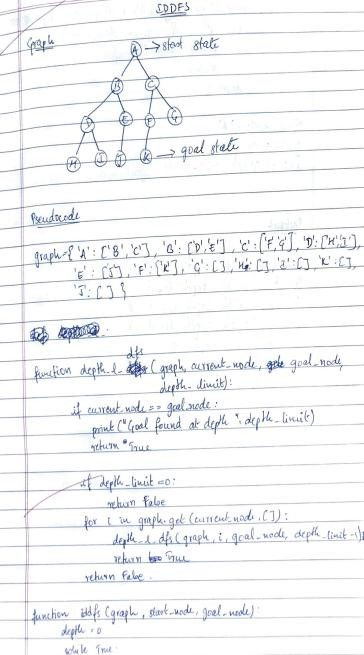 IDDFS
Graph
A → start state
B C
D E F G
H I J K → goal state
Pseudocode
graph = { 'A' : ['B', 'C'], 'B' : ['D', 'E'], 'C' : ['F', 'G'], 'D' : ['H', 'I'],
'E' : ['J'], 'F' : ['K'], 'G' : [], 'H' : [], 'I' : [], 'K' : [],
'J' : [] }
function depth_l_dfs (graph, current_node, goal_node,
depth_limit):
if current_node == goal_node :
print ("Goal found at depth", depth_limit)
return True
if depth_limit = 0:
return False
for i in graph.get (current_node, []) :
depth_l_dfs (graph, i, goal_node, depth_limit -1)
return True
return False.
function iddfs (graph, start_node, goal_node) :
depth = 0
while True: